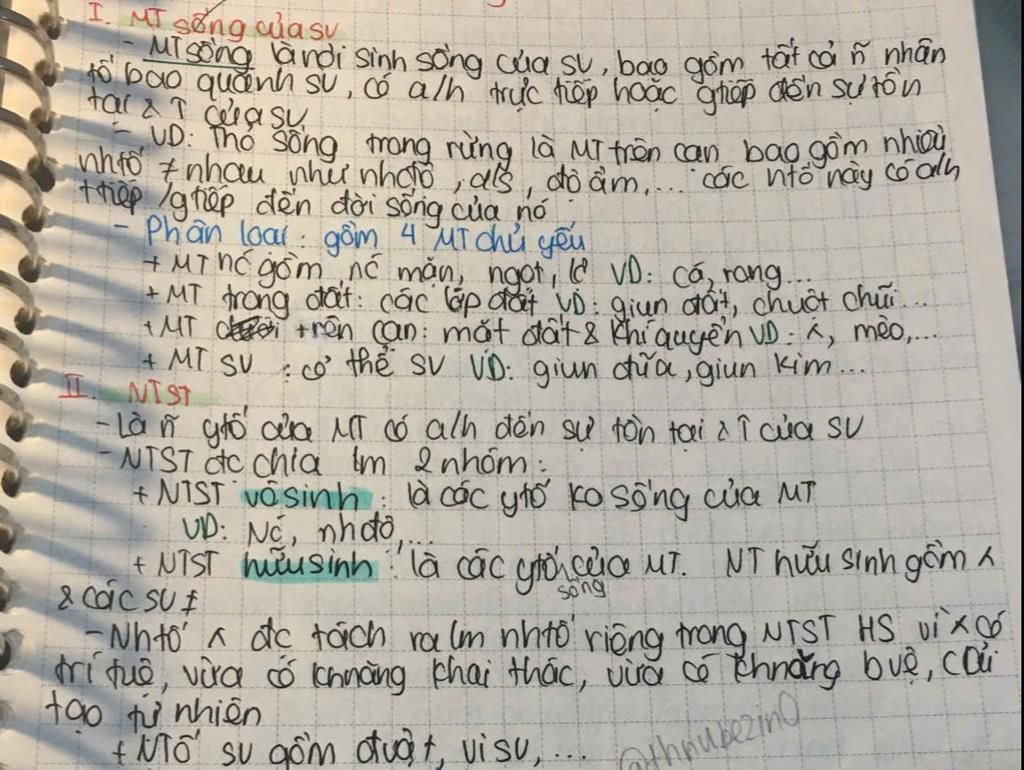 I. MT sống của SV
- MT sống là nơi sinh sống của SV, bao gồm tất cả ~n nhân
tố bao quanh SV, có a/h trực tiếp hoặc gtiếp đến sự tồn
tại & ↑ của SV
- VD: Thỏ sống trong rừng là MT trên cạn bao gồm nhiều
nhtố ≠ nhau như nhđộ, a/s, độ ẩm,... các ntố này có a/h
ttiếp /gtiếp đến đời sống của nó
- Phân loại: gồm 4 MT chủ yếu
+ MT nc gồm nc mặn, ngọt, lợ VD: cá, rong...
+ MT trong đất: các lớp đất VD: giun đất, chuột chũi...
+ MT trên cạn: mặt đất & khí quyển VD: ʌ, mèo,...
+ MT SV: cơ thể SV VD: giun đũa, giun kim...
II. NTST
- Là ~n ytố của MT có a/h đến sự tồn tại & ↑ của SV
- NTST đc chia lm 2 nhóm:
+ NTST vô sinh: là các ytố ko sống của MT
VD: Nc, nhđộ,...
+ NTST hữu sinh: là các ytố sống của MT. NT hữu sinh gồm ʌ
& các SV ≠
- Nhtố ʌ đc tách ra lm nhtố riêng trong NTST HS vì ʌ có
trí tuệ, vừa có khnăng khai thác, vừa có khnăng bvệ, cải
tạo tự nhiên
+ NTố SV gồm đvật, vi SV,...